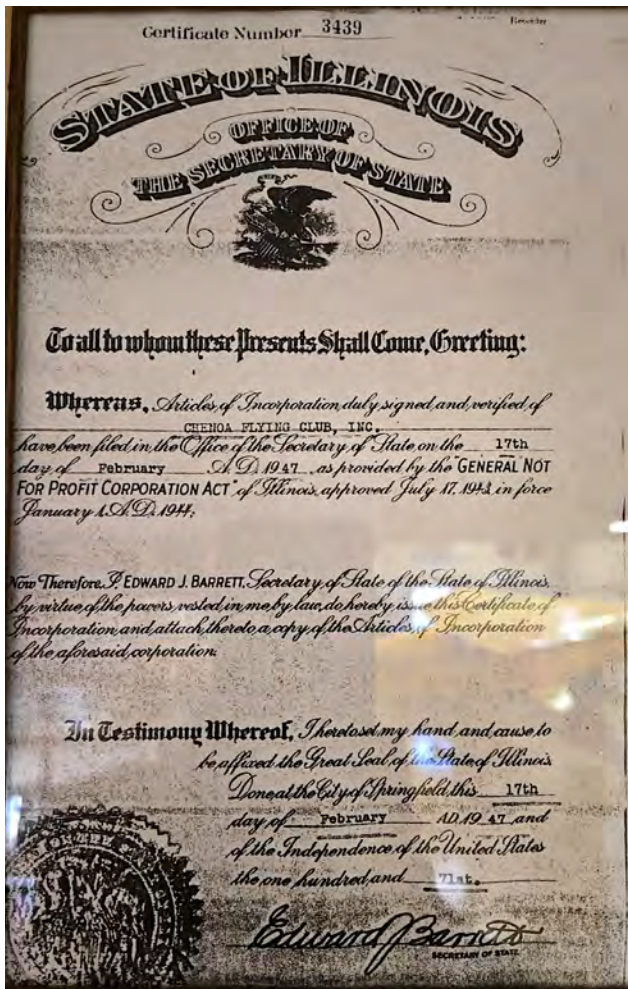 Certificate Number 3439
Recorder
STATE OF ILLINOIS
OFFICE OF
THE SECRETARY OF STATE
To all to whom these Presents Shall Come, Greeting:
Whereas, Articles of Incorporation duly signed and verified of
CHENOA FLYING CLUB, INC.
have been filed in the Office of the Secretary of State on the 17th
day of February A.D. 1947, as provided by the "GENERAL NOT
FOR PROFIT CORPORATION ACT" of Illinois, approved July 17, 1943, in force
January 1, A.D. 1944;
Now Therefore, I, EDWARD J. BARRETT, Secretary of State of the State of Illinois,
by virtue of the powers vested in me by law, do hereby issue this Certificate of
Incorporation and attach thereto a copy of the Articles of Incorporation
of the aforesaid corporation.
In Testimony Whereof, I hereto set my hand and cause to
be affixed the Great Seal of the State of Illinois
Done at the City of Springfield, this 17th
day of February AD. 1947 and
of the Independence of the United States
the one hundred and 71st.
Edward J Barrett
SECRETARY OF STATE